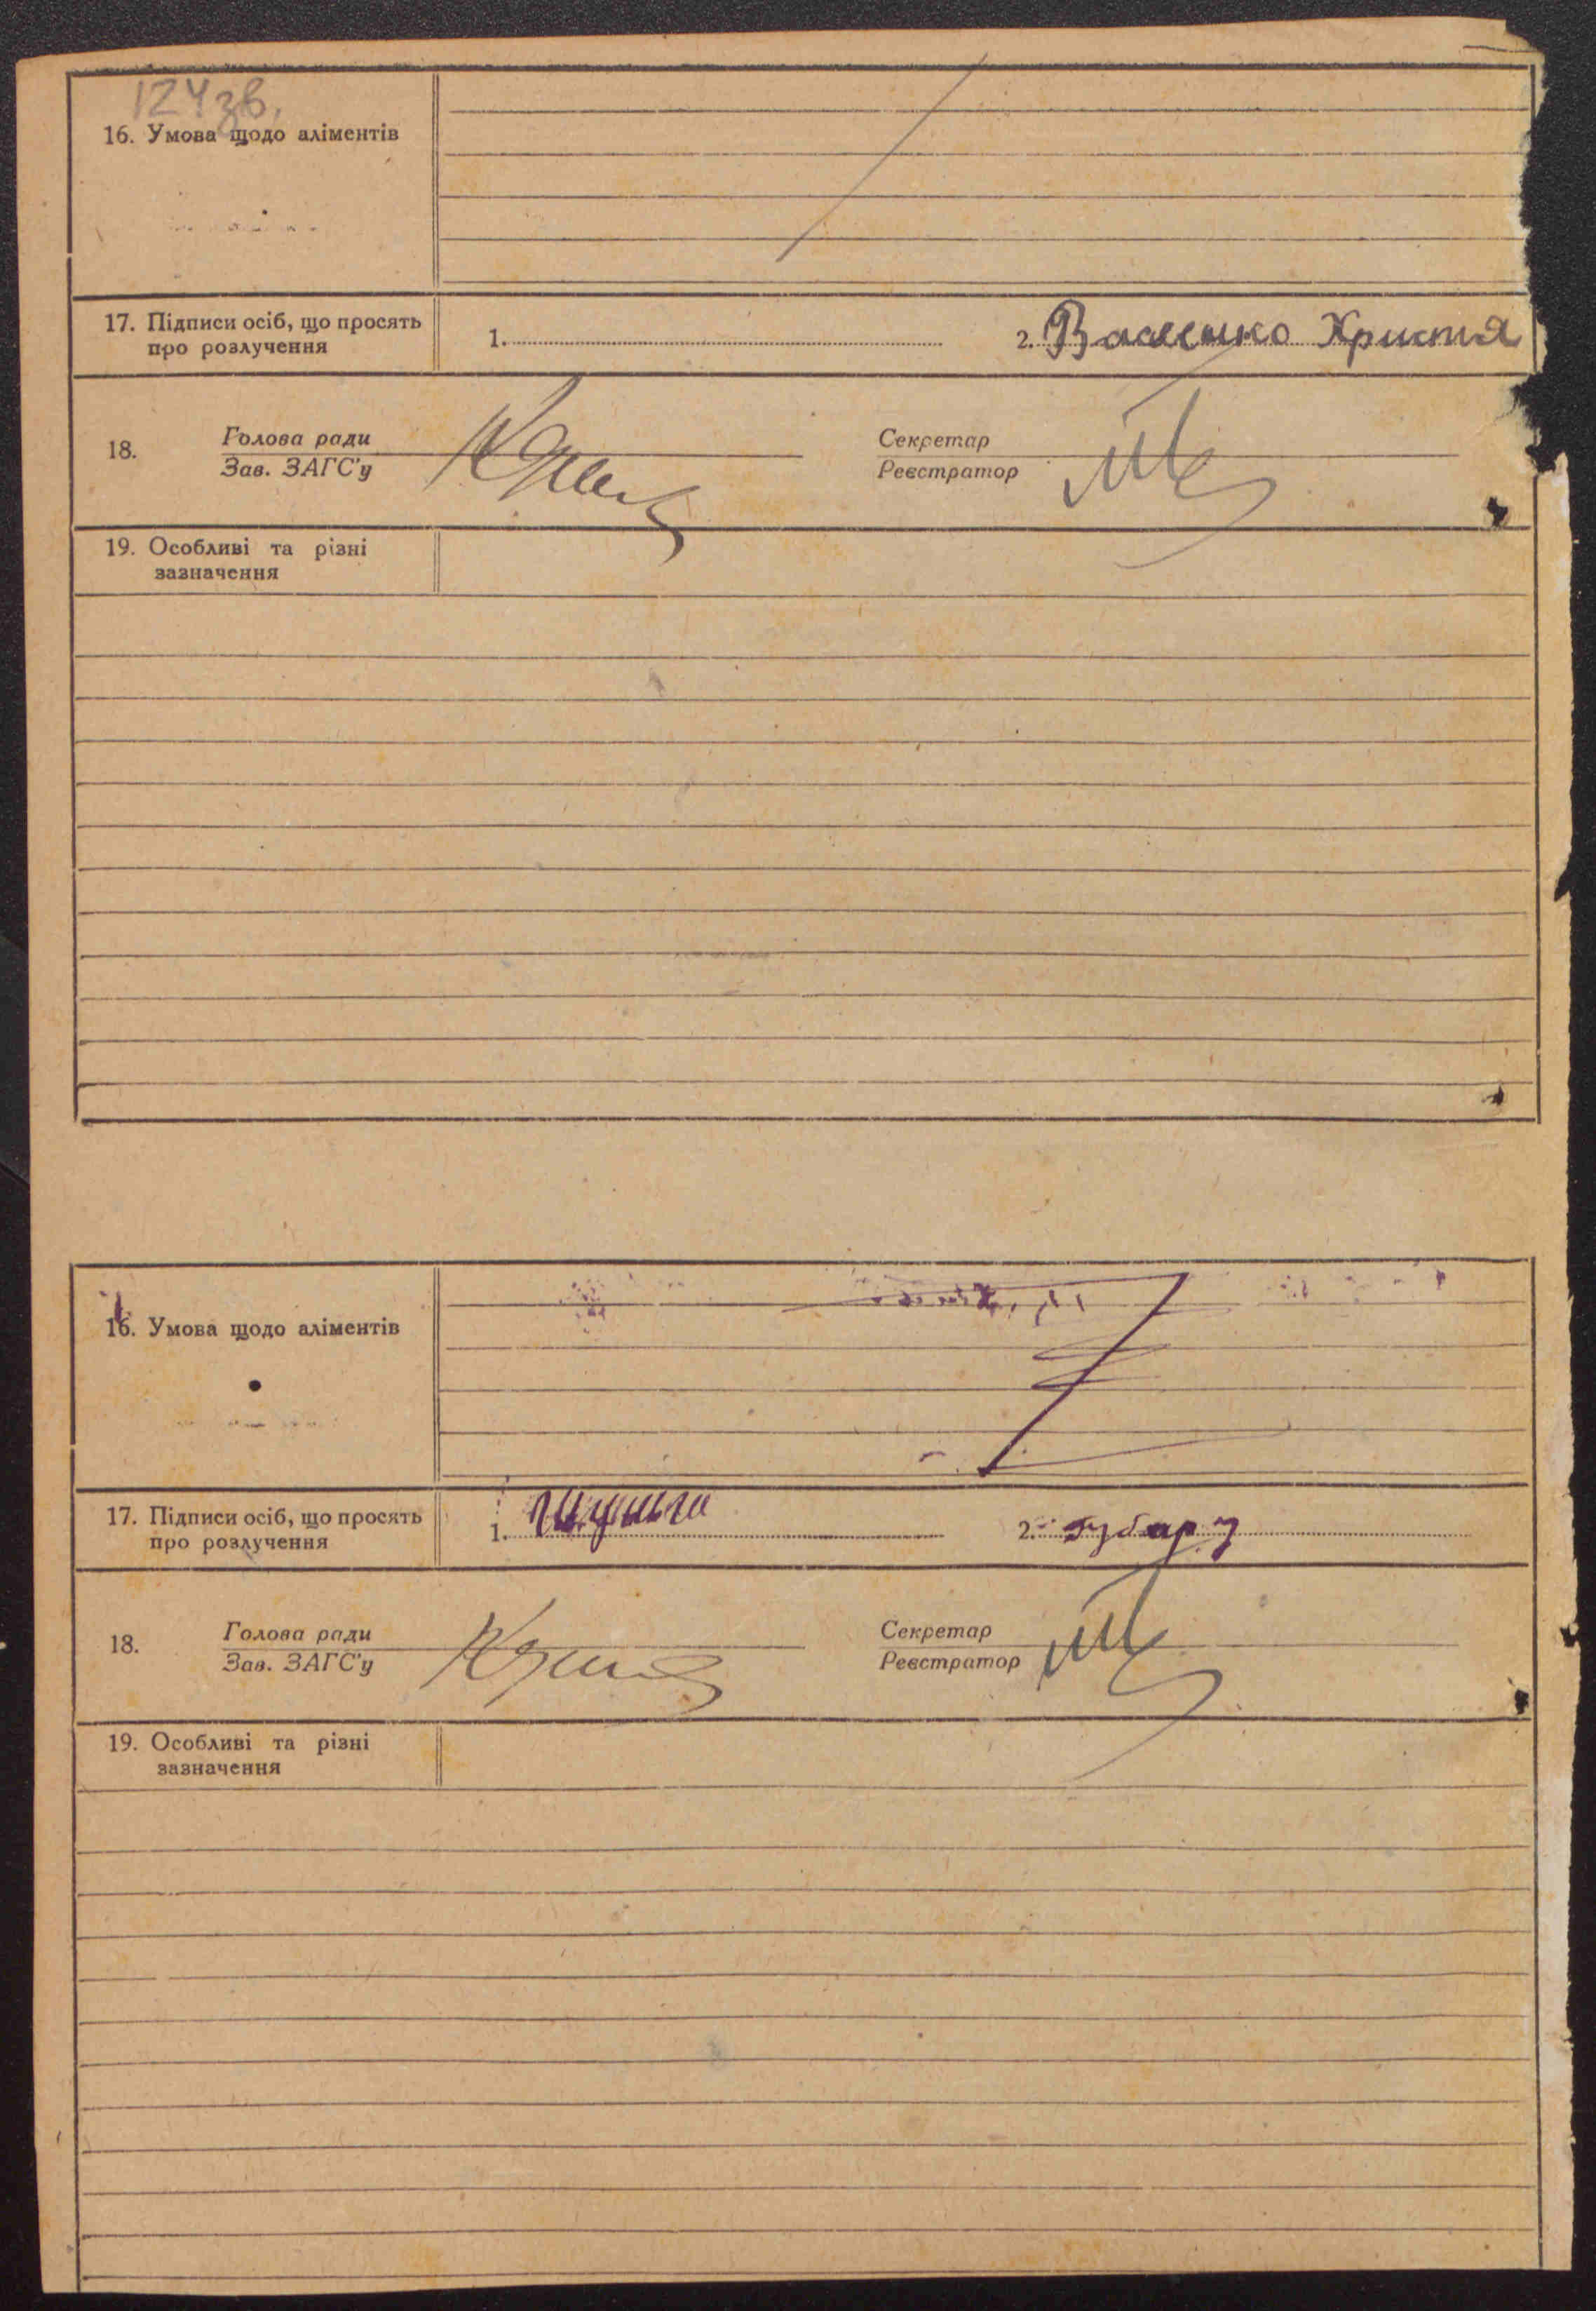 124зв.
16. Умова щодо аліментів
17. Підписи осіб, що просять
про розлучення
1.
2. Христя
18.
Голова ради
Зав. ЗАГС'у
Секретар
Реєстратор
19. Особливі та різні
зазначення
16. Умова щодо аліментів
17. Підписи осіб, що просять
про розлучення
1.
2. губар
18.
Голова ради
Зав. ЗАГС'у
Секретар
Реєстратор
19. Особливі та різні
зазначення